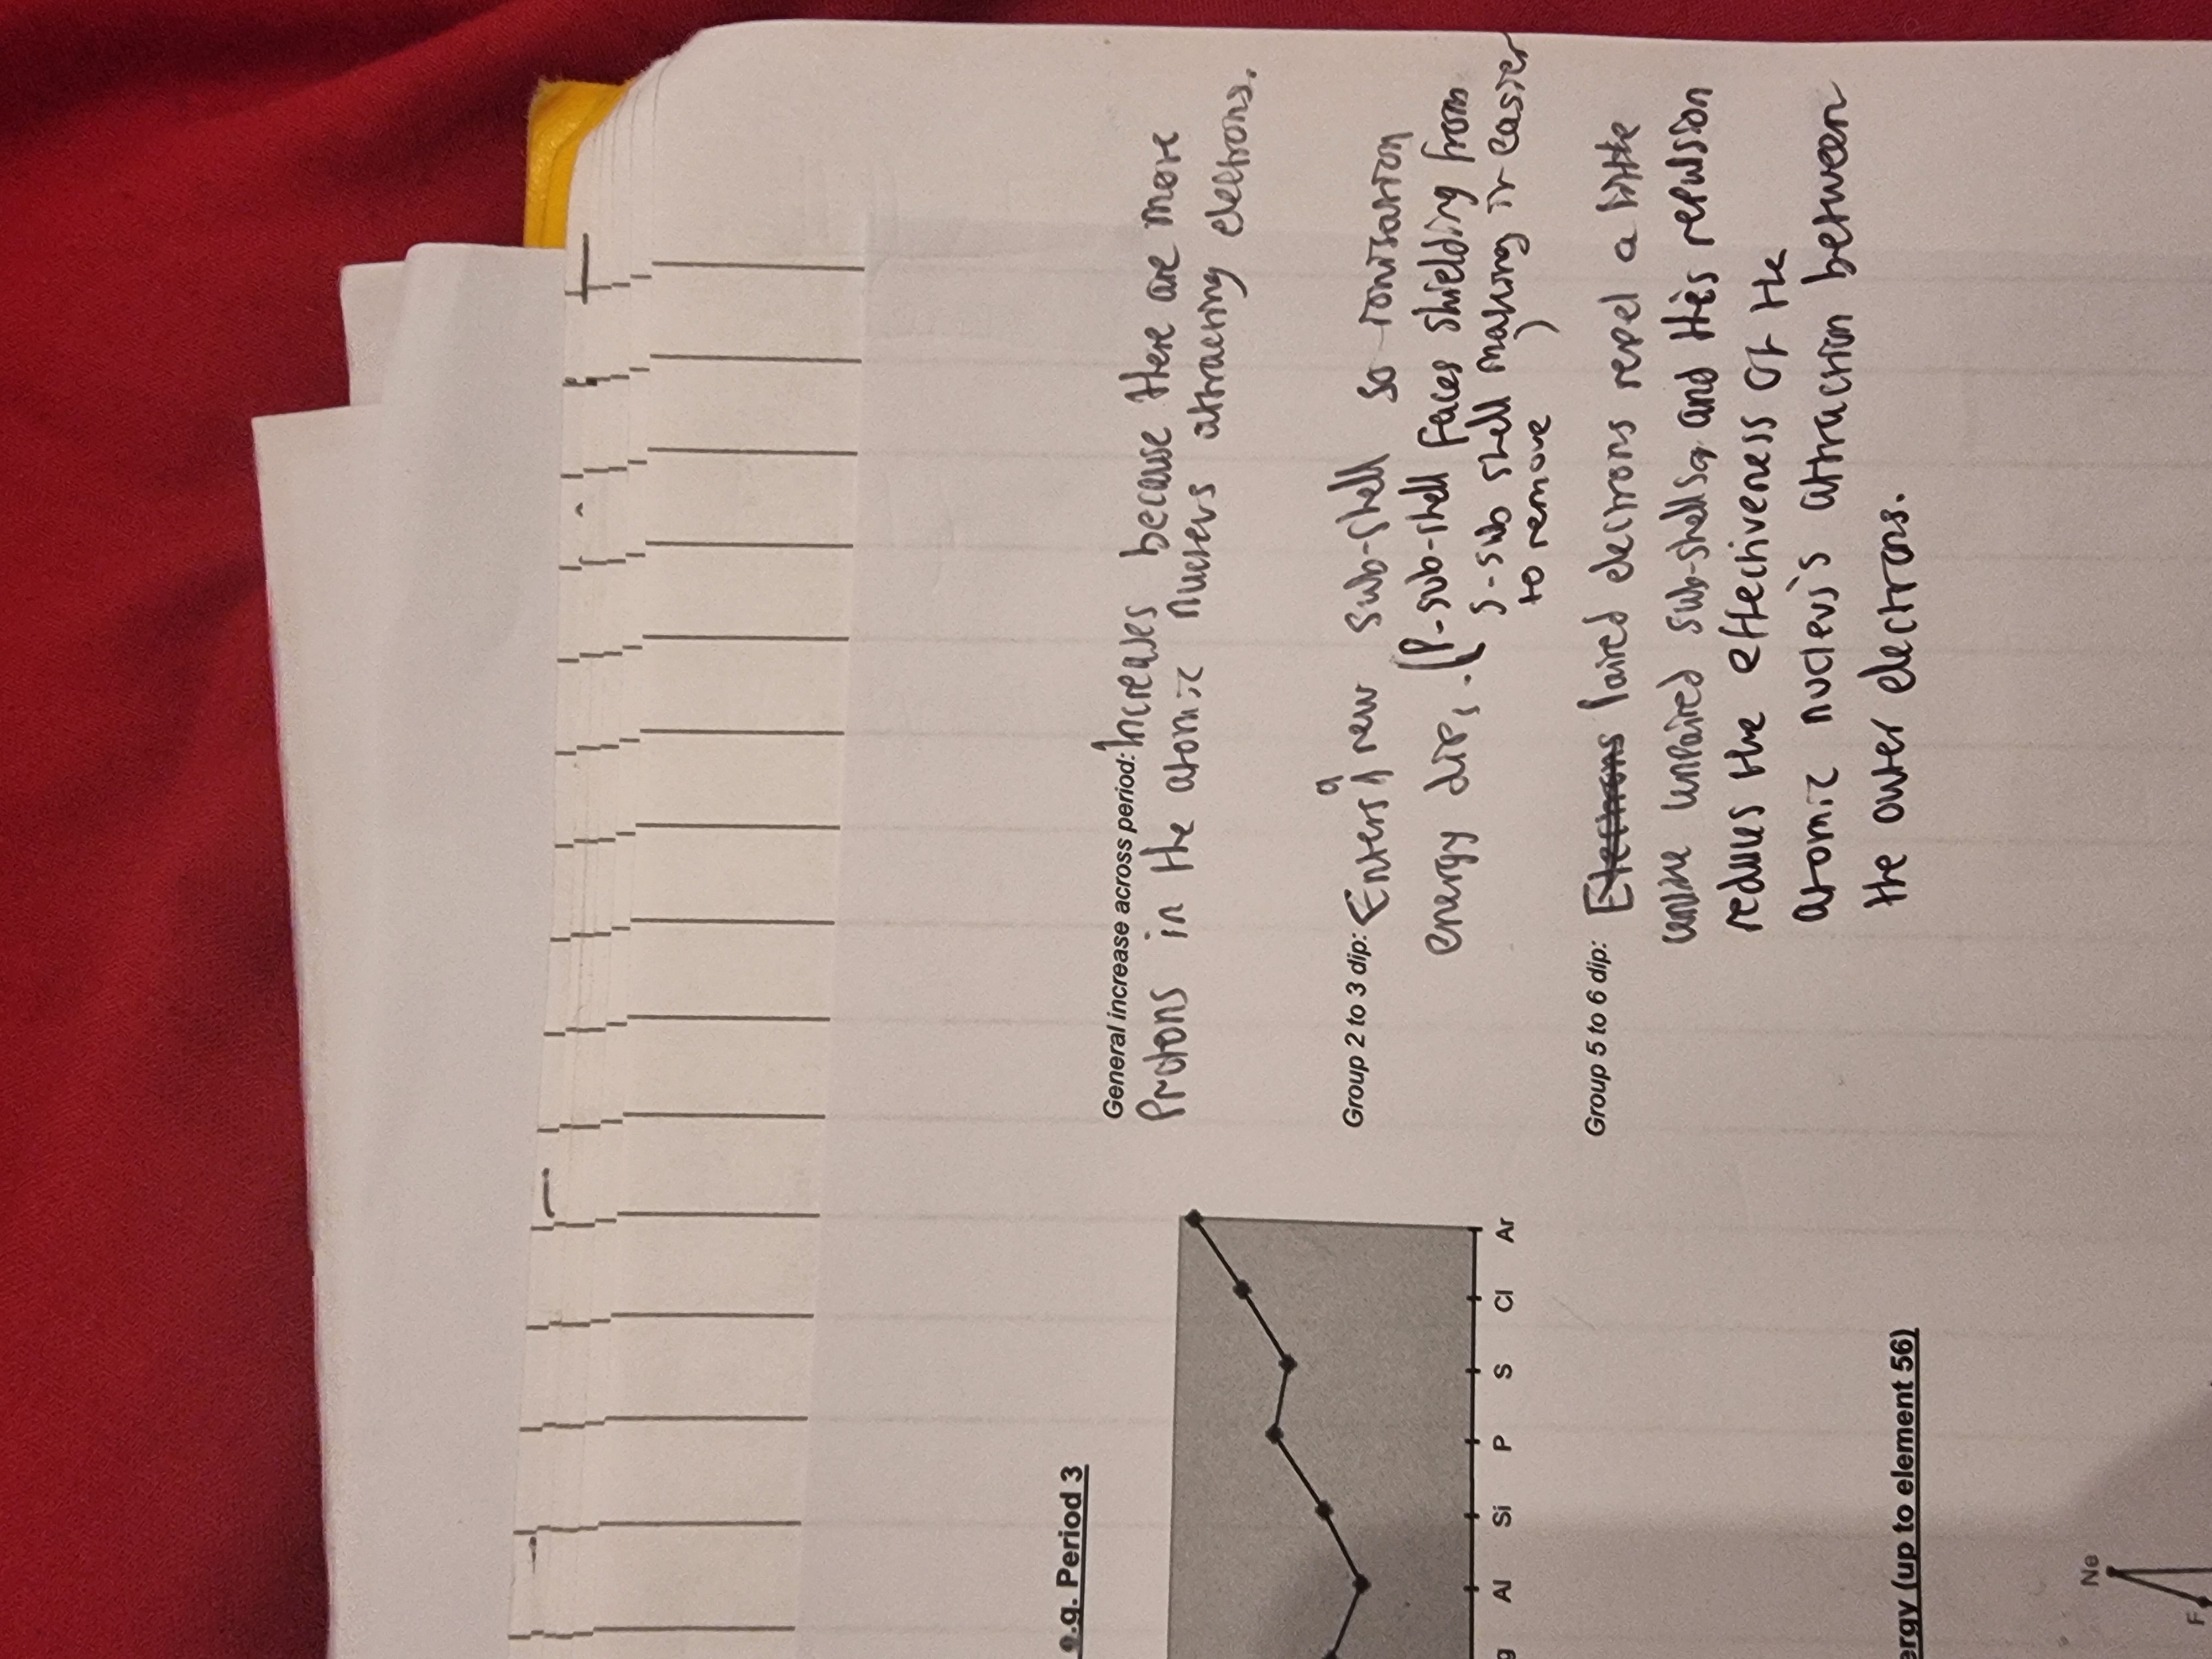 General increase across period: Increases because there are more
Protons in the atomic nucleus attracting electrons.
Group 2 to 3 dip: Enters a new sub-shell so ionisation
energy dips. (P-sub-shell faces shielding from
s-sub shell making it easier
to remove)
Group 5 to 6 dip: Electrons Paired electrons repel a little
unlike unpaired sub-shells, and this repulsion
reduces the effectiveness of the
atomic nucleus's attraction between
the outer electrons.
e.g. Period 3
g Al Si P S Cl Ar
ergy (up to element 56)
Ne
F